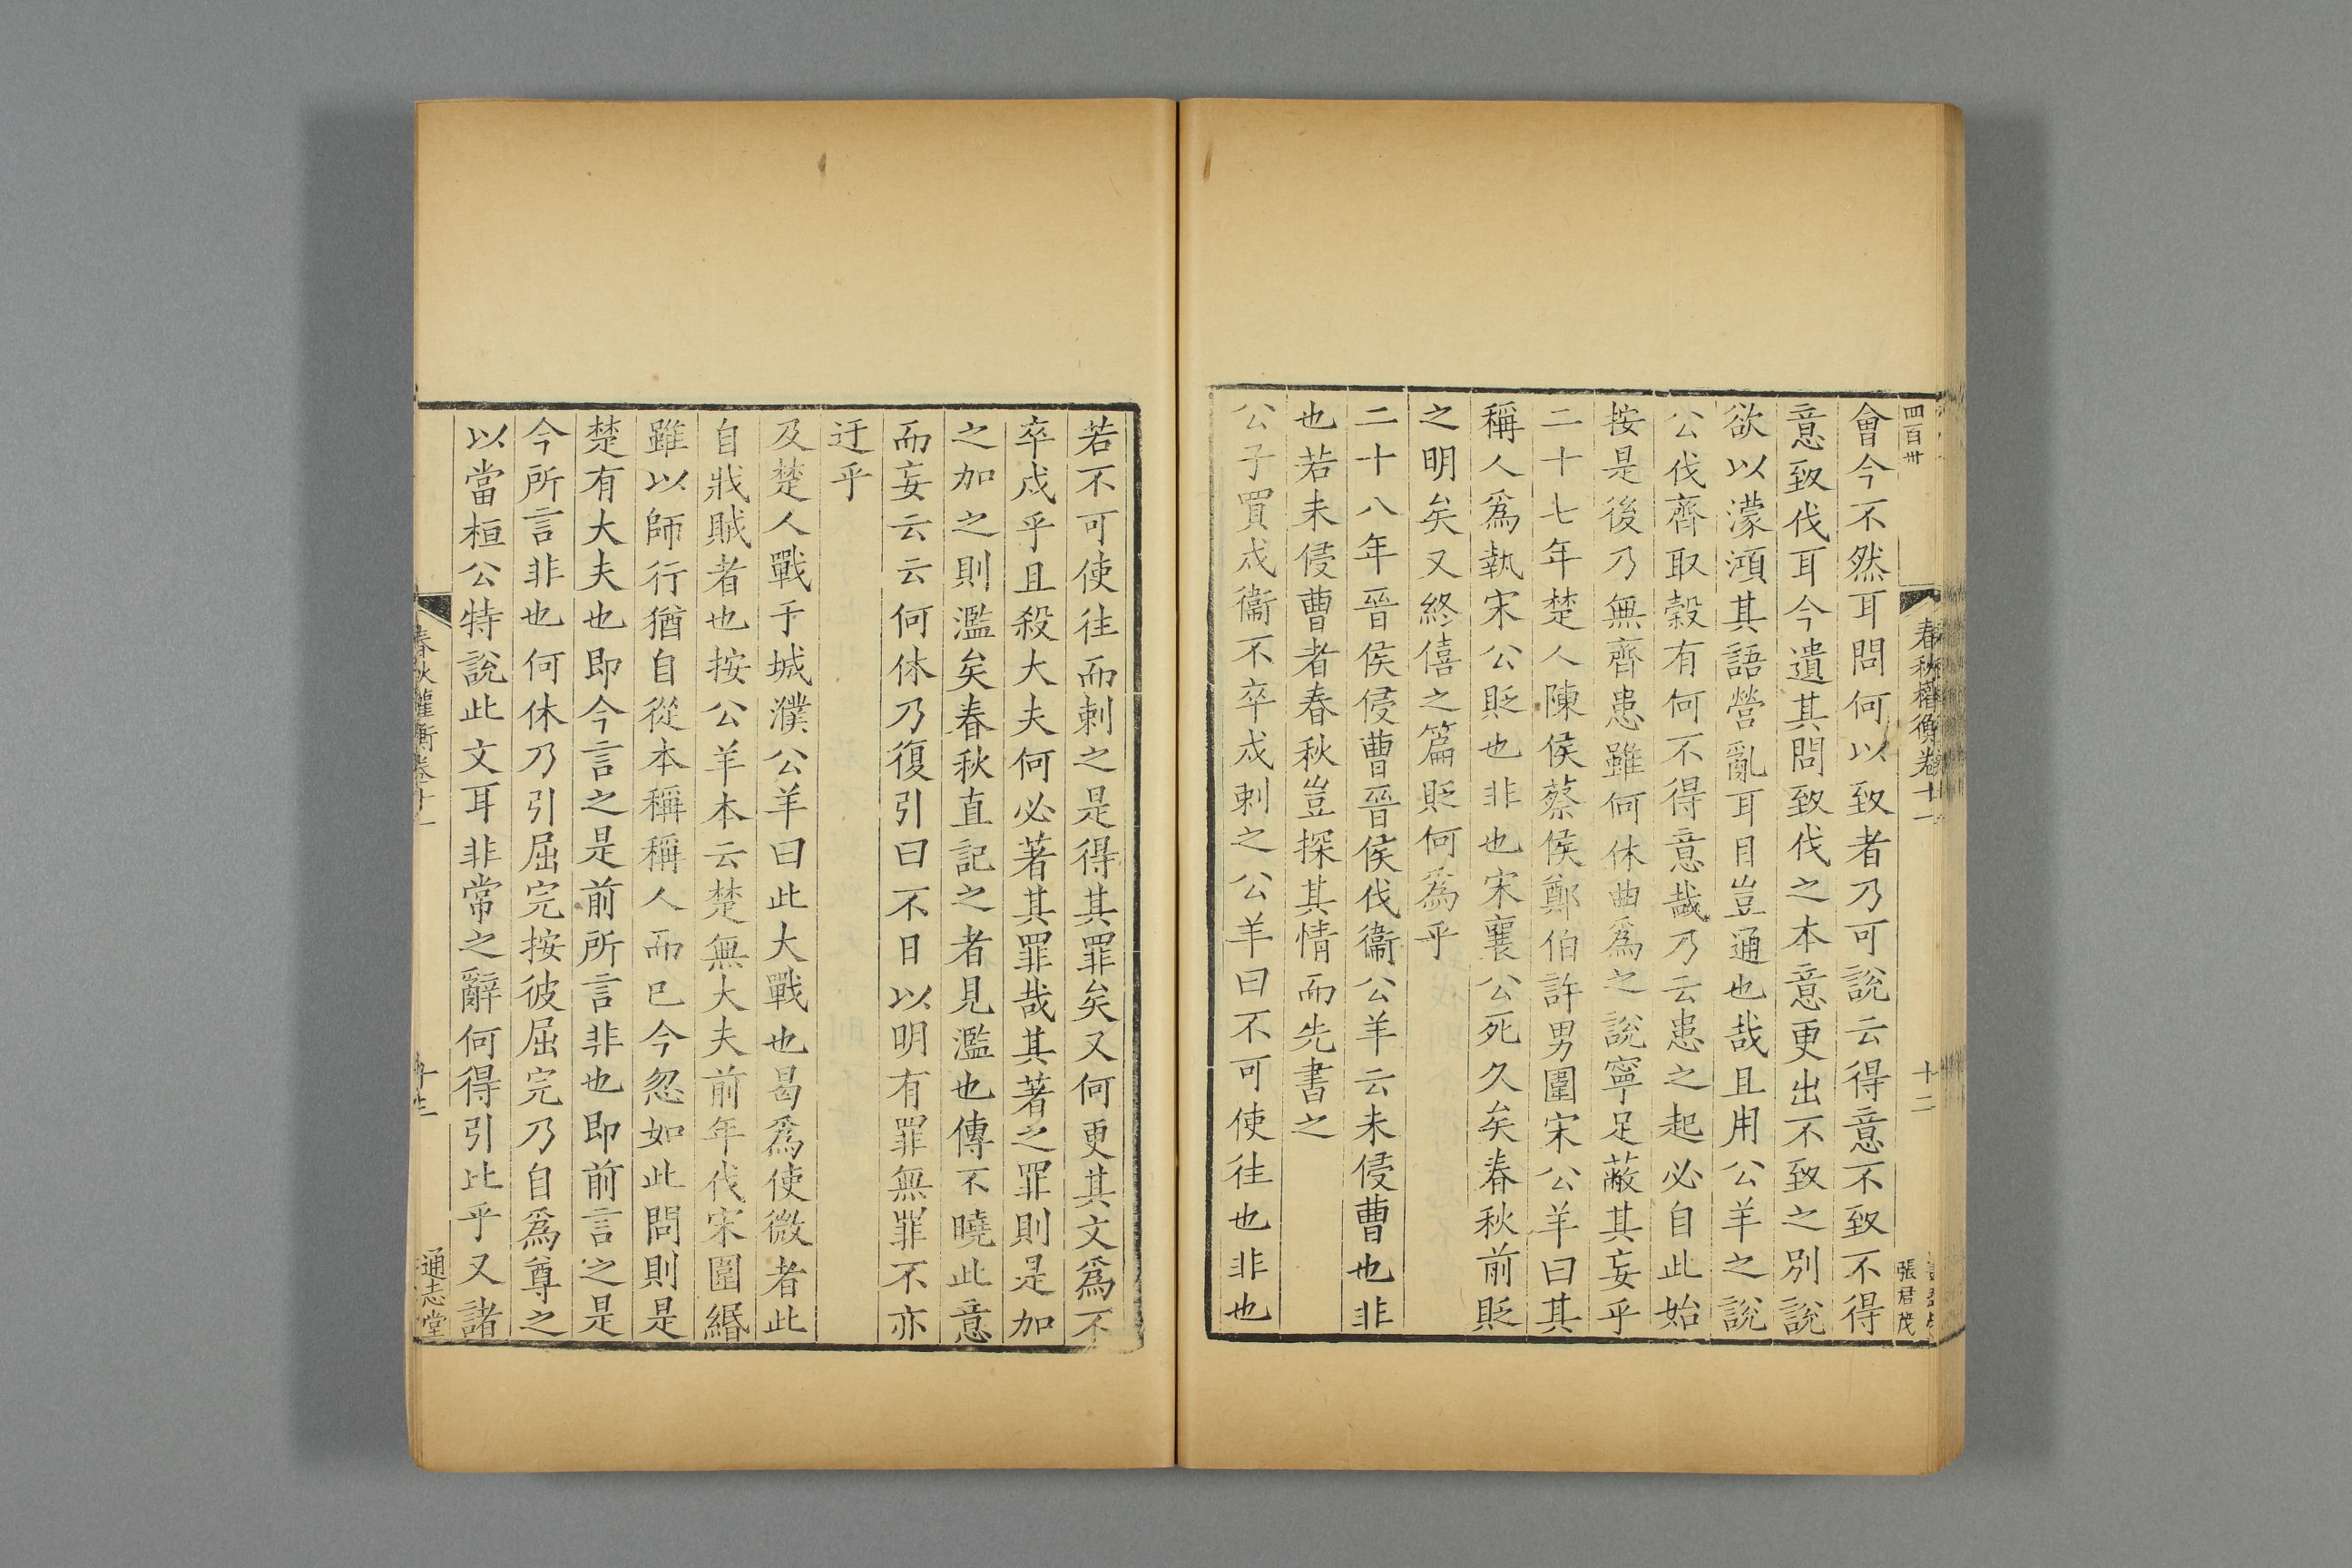 四百卅
春秋權衡卷十一
十二
張君茂
會今不然耳問何以致者乃可說云得意不致不得
意致伐耳今遺其問致伐之本意更出不致之別說
欲以濛澒其語營亂耳目豈通也哉且用公羊之說
公伐齊取穀有何不得意哉乃云患之起必自此始
按是後乃無齊患雖何休曲爲之說寧足蔽其妄乎
二十七年楚人陳侯蔡侯鄭伯許男圍宋公羊曰其
稱人爲執宋公貶也非也宋襄公死久矣春秋前貶
之明矣又終僖之篇貶何爲乎
二十八年晉侯侵曹晉侯伐衞公羊云未侵曹也非
也若未侵曹者春秋豈探其情而先書之
公子買戍衞不卒戍刺之公羊曰不可使往也非也
若不可使往而刺之是得其罪矣又何更其文爲不
卒戍乎且殺大夫何必著其罪哉其著之罪則是加
之加之則濫矣春秋直記之者見濫也傳不曉此意
而妄云云何休乃復引曰不日以明有罪無罪不亦
迂乎
及楚人戰于城濮公羊曰此大戰也曷爲使微者此
自戕賊者也按公羊本云楚無大夫前年伐宋圍緡
雖以師行猶自從本稱稱人而已今忽如此問則是
楚有大夫也即今言之是前所言非也即前言之是
今所言非也何休乃引屈完按彼屈完乃自爲尊之
以當桓公特說此文耳非常之辭何得引比乎又諸
春秋權衡卷十一
十三
通志堂